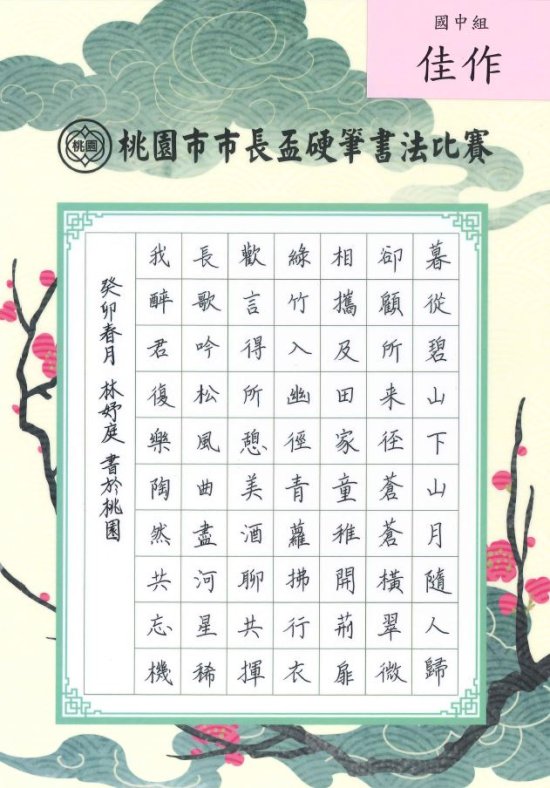 國中組
佳作
桃園
桃園市市長盃硬筆書法比賽
暮從碧山下山月隨人歸
卻顧所来径蒼蒼橫翠微
相攜及田家童稚開荊扉
綠竹入幽徑青蘿拂行衣
歡言得所憩美酒聊共揮
長歌吟松風曲盡河星稀
我醉君復樂陶然共忘機
癸卯春月 林妤庭 書於桃園